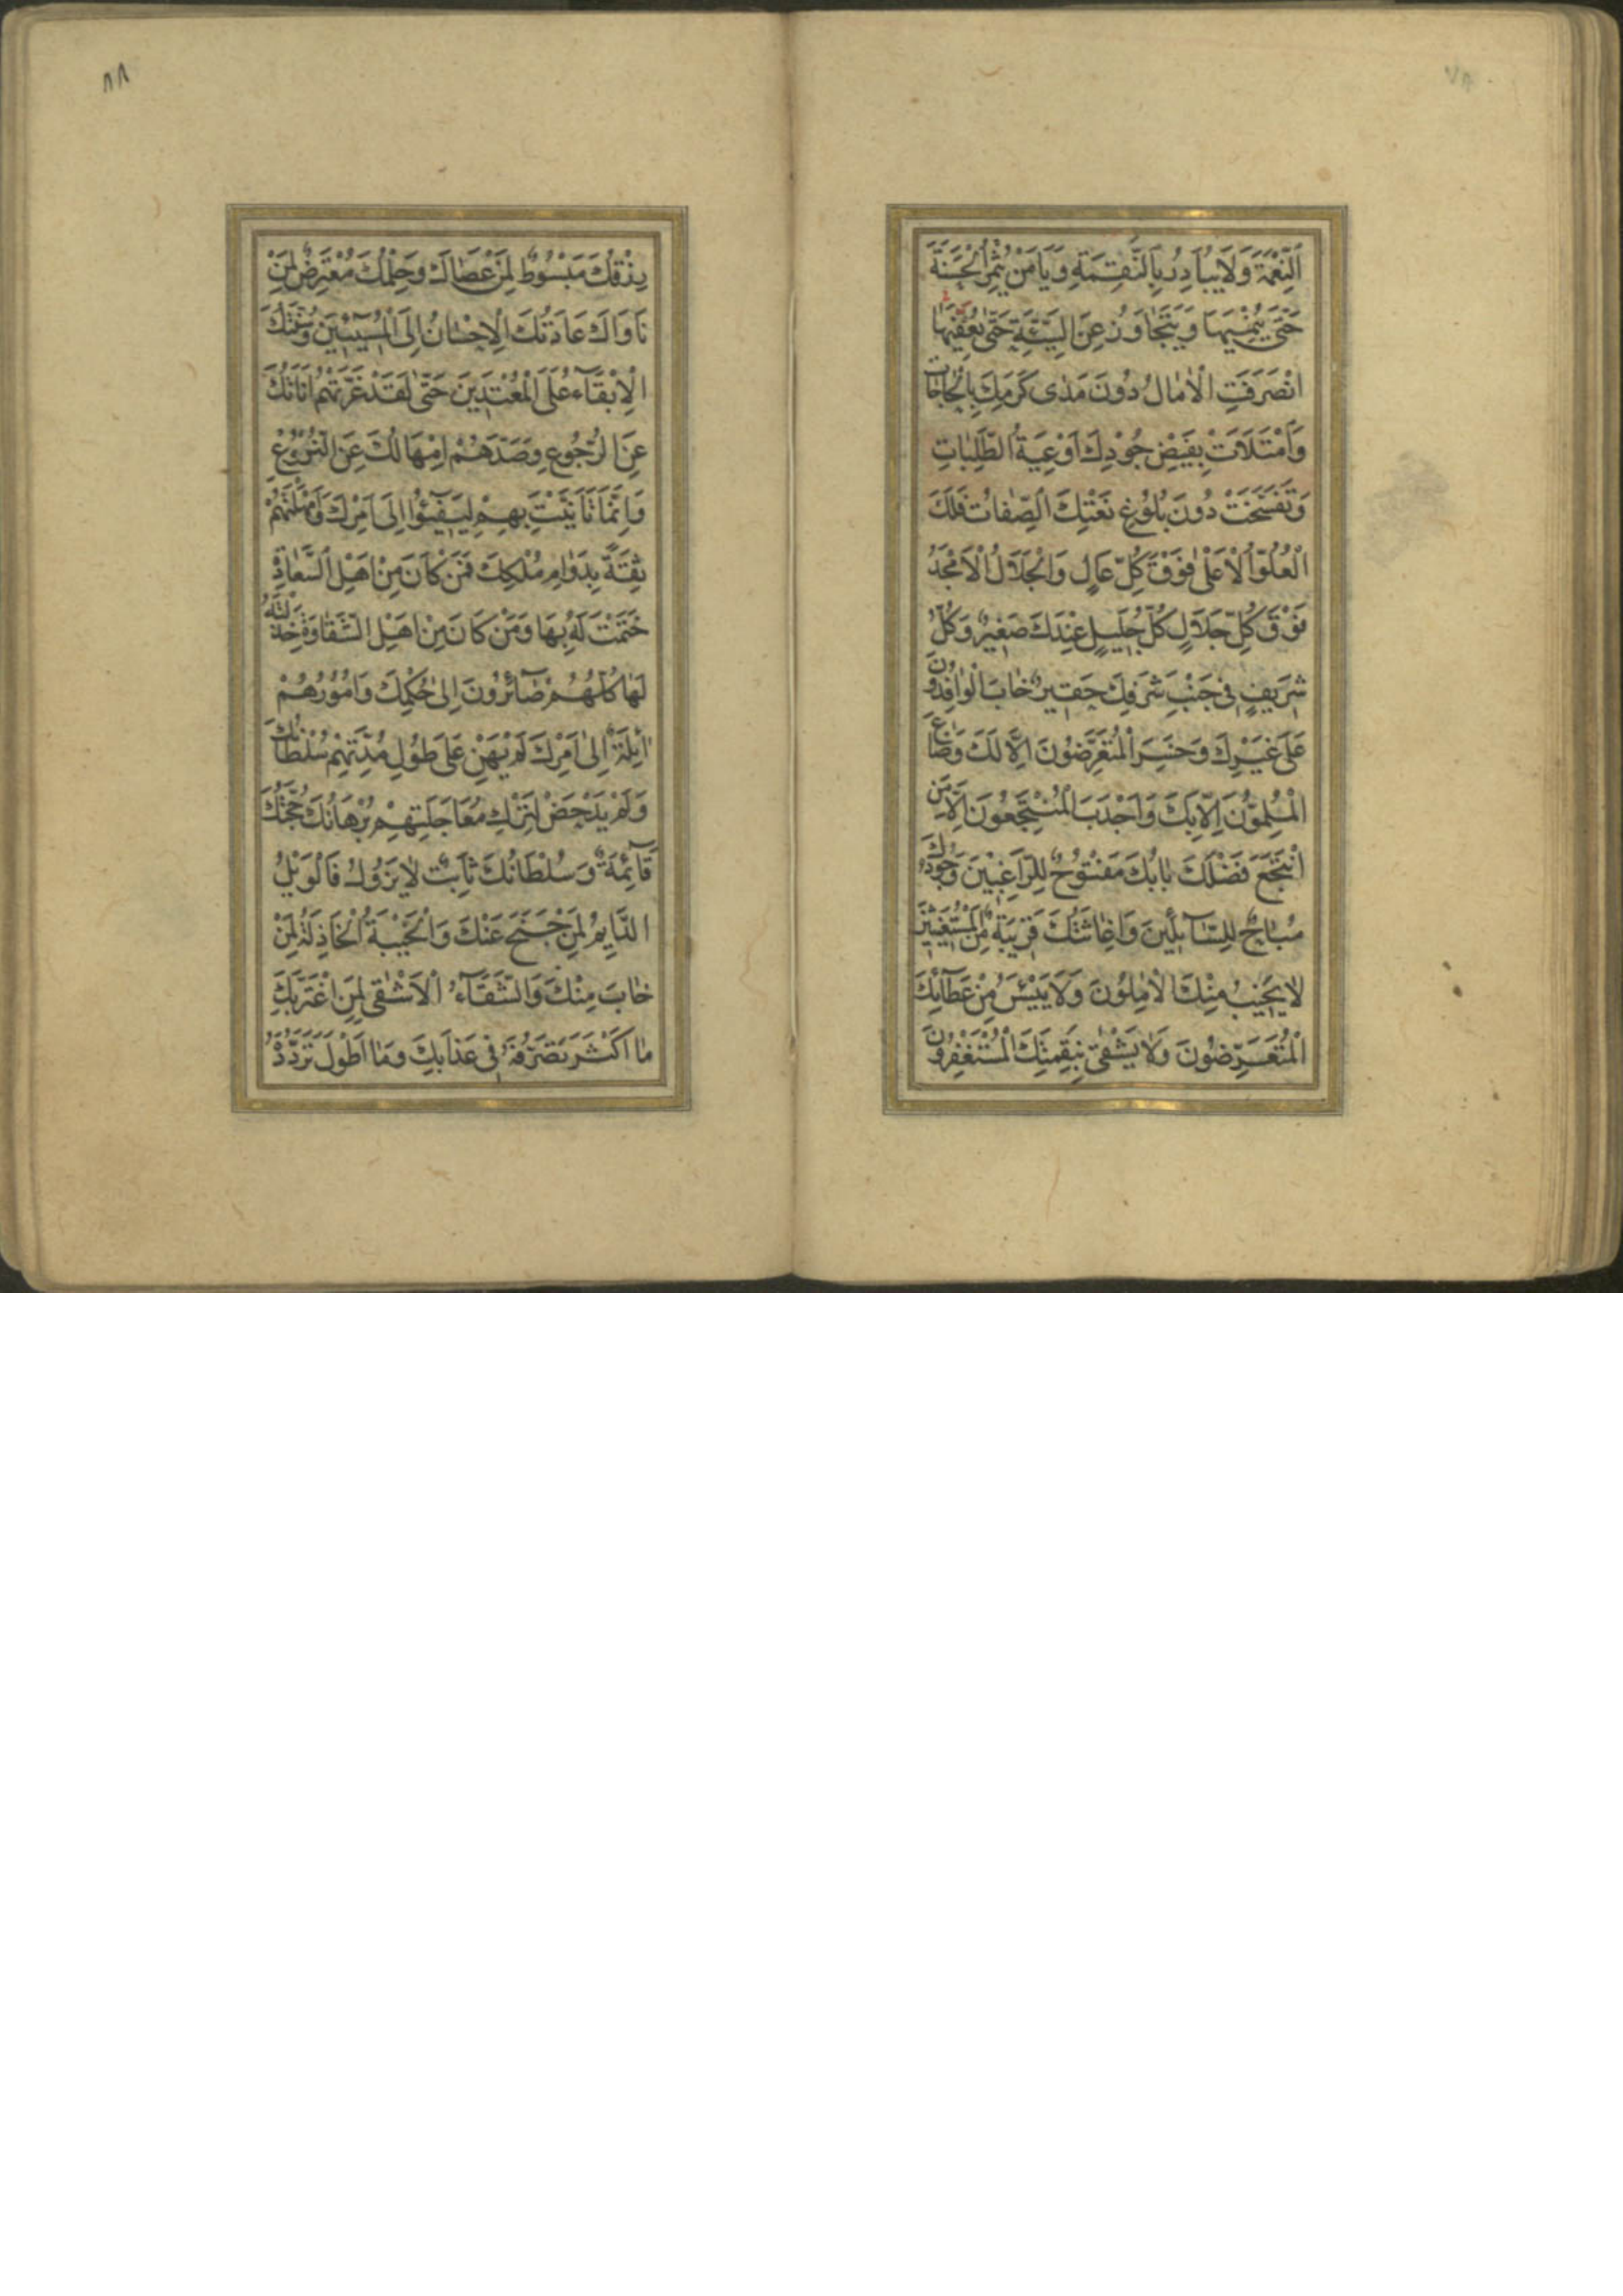 ٨٧
اَلنِّعْمَةَ وَلَا يُبَادِرُ بِالنَّقِمَةِ وَيَا مَنْ يُثْمِرُ الْحَسَنَةَ
حَتّٰى يُنْمِيَهَا وَيَتَجَاوَزُ عَنِ السَّيِّئَةِ حَتّٰى يُعَفِّيَهَا
انْصَرَفَتِ الْاٰمَالُ دُونَ مَدٰى كَرَمِكَ بِالْحَاجَاتِ
وَامْتَلَاَتْ بِفَيْضِ جُوْدِكَ اَوْعِيَةُ الطَّلِبَاتِ
وَتَفَسَّخَتْ دُونَ بُلُوْغِ نَعْتِكَ الصِّفَاتُ فَلَكَ
الْعُلُوُّ الْاَعْلٰى فَوْقَ كُلِّ عَالٍ وَالْجَلَالُ الْاَمْجَدُ
فَوْقَ كُلِّ جَلَالٍ كُلُّ جَلِيلٍ عِنْدَكَ صَغِيرٌ وَكُلُّ
شَرِيفٍ فِي جَنْبِ شَرَفِكَ حَقِيرٌ خَابَ الْوَافِدُونَ
عَلٰى غَيْرِكَ وَخَسِرَ الْمُتَعَرِّضُونَ اِلَّا لَكَ وَضَاعَ
الْمُلِمُّونَ اِلَّا بِكَ وَاَجْدَبَ الْمُنْتَجِعُونَ اِلَّا مَنِ
انْتَجَعَ فَضْلَكَ بَابُكَ مَفْتُوْحٌ لِلرَّاغِبِيْنَ وَجُودُكَ
مُبَاحٌ لِلسَّآئِلِينَ وَاِغَاثَتُكَ قَرِيبَةٌ مِنَ الْمُسْتَغِيثِينَ
لَا يَخِيبُ مِنْكَ الْاٰمِلُونَ وَلَا يَيْئَسُ مِنْ عَطَآئِكَ
الْمُتَعَرِّضُونَ وَلَا يَشْقٰى بِنَقِمَتِكَ الْمُسْتَغْفِرُونَ
٨٨
رِزْقُكَ مَبْسُوْطٌ لِمَنْ عَصَاكَ وَحِلْمُكَ مُعْتَرِضٌ لِمَنْ
نَاوَاكَ عَادَتُكَ الْاِحْسَانُ اِلَى الْمُسِيئِينَ وَسُنَّتُكَ
الْاِبْقَآءُ عَلَى الْمُعْتَدِينَ حَتّٰى لَقَدْ غَرَّتْهُمْ اَنَاتُكَ
عَنِ الرُّجُوعِ وَصَدَّهُمْ اِمْهَالُكَ عَنِ النُّزُوْعِ
وَاِنَّمَا تَاَنَّيْتَ بِهِمْ لِيَفِيْئُوا اِلٰى اَمْرِكَ وَاَمْهَلْتَهُمْ
ثِقَةً بِدَوَامِ مُلْكِكَ فَمَنْ كَانَ مِنْ اَهْلِ السَّعَادَةِ
خَتَمْتَ لَهُ بِهَا وَمَنْ كَانَ مِنْ اَهْلِ الشَّقَاوَةِ خَذَلْتَهُ
لَهَا كُلُّهُمْ صَآئِرُونَ اِلٰى حُكْمِكَ وَاُمُوْرُهُمْ
اٰئِلَةٌ اِلٰى اَمْرِكَ لَمْ يَهِنْ عَلٰى طُولِ مُدَّتِهِمْ سُلْطَانُكَ
وَلَمْ يَدْحَضْ لِتَرْكِ مُعَاجَلَتِهِمْ بُرْهَانُكَ حُجَّتُكَ
قَآئِمَةٌ وَسُلْطَانُكَ ثَابِتٌ لَا يَزُوْلُ فَالْوَيْلُ
الدَّايِمُ لِمَنْ جَنَحَ عَنْكَ وَالْخَيْبَةُ الْخَاذِلَةُ لِمَنْ
خَابَ مِنْكَ وَالشَّقَآءُ الْاَشْقٰى لِمَنِ اغْتَرَّ بِكَ
مَا اَكْثَرَ تَصَرُّفَهُ فِي عَذَابِكَ وَمَا اَطْوَلَ تَرَدُّدَهُ